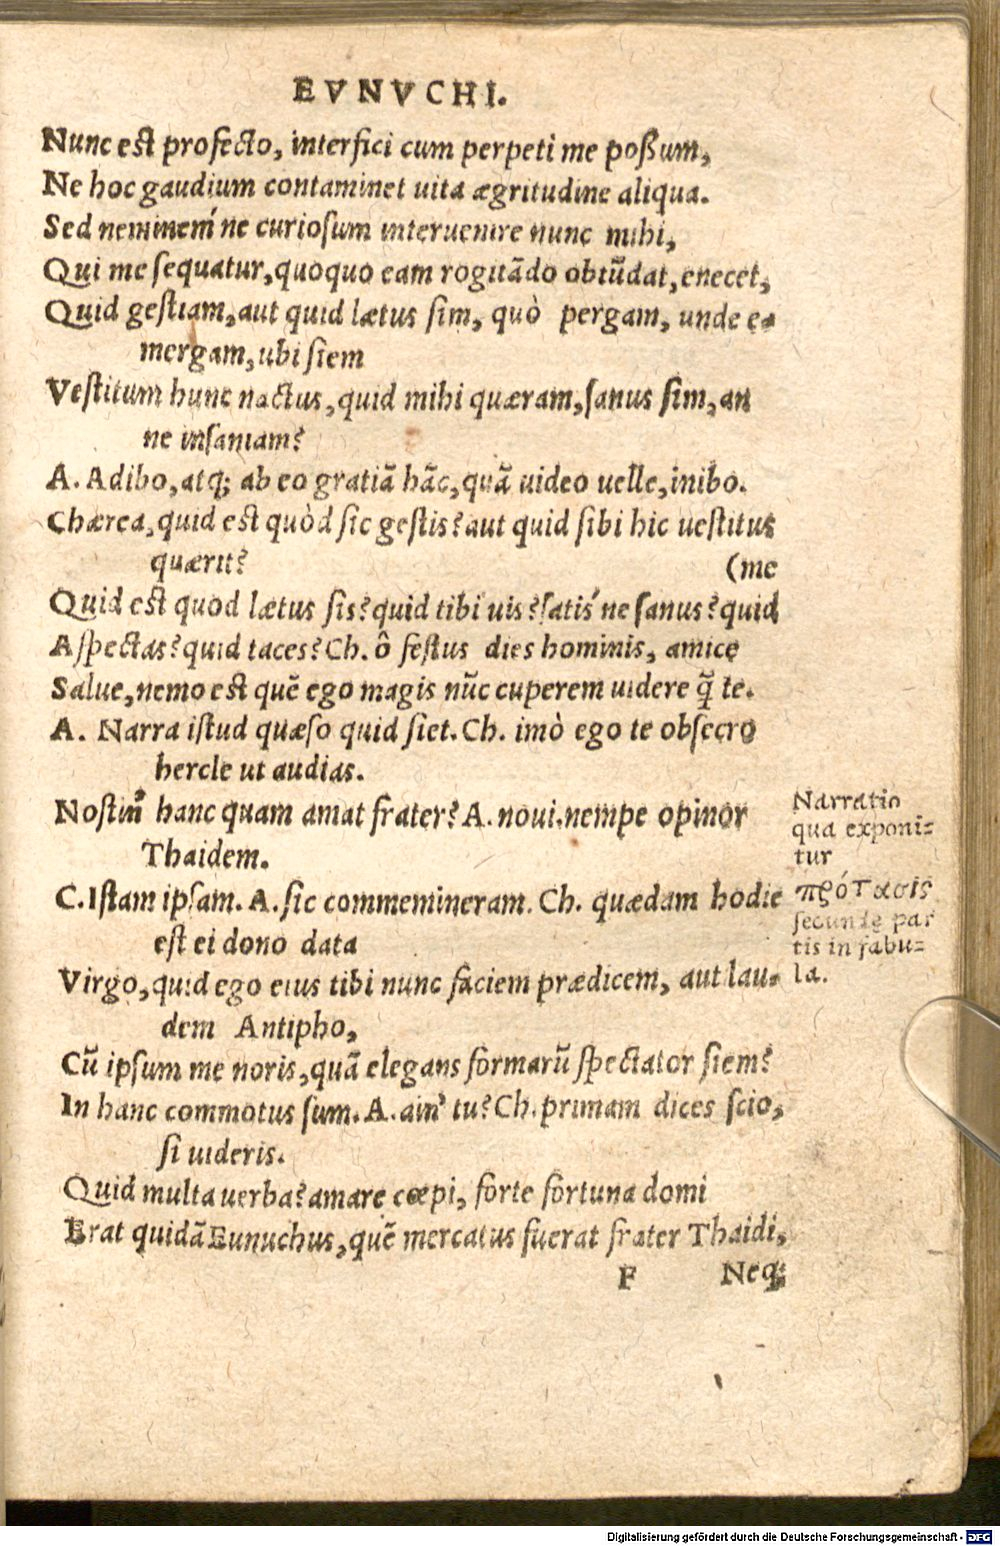 EVNVCHI.
Nunc est profecto, interfici cum perpeti me poßum,
Ne hoc gaudium contaminet uita ægritudine aliqua.
Sed neminem'ne curiosum interuenire nunc mihi,
Qui me sequatur, quoquo eam rogitādo obtūdat, enecet,
Quid gestiam, aut quid lætus sim, quò pergam, unde e-
mergam, ubi siem
Vestitum hunc nactus, quid mihi quæram, sanus sim, an
ne insaniam?
A. Adibo, atq; ab eo gratiā hāc, quā uideo uelle, inibo.
Chærea, quid est quòd sic gestis? aut quid sibi hic uestitus
quærit? (me
Quid est quod lætus sis? quid tibi uis? satis'ne sanus? quid
Aspectas? quid taces? Ch. ô festus dies hominis, amice
Salue, nemo est quē ego magis nūc cuperem uidere q̄ te.
A. Narra istud quæso quid siet. Ch. imò ego te obsecro
hercle ut audias.
Nostin' hanc quam amat frater? A. noui. nempe opinor
Thaidem.
C. Istam ipsam. A. sic commemineram. Ch. quædam hodie
est ei dono data
Virgo, quid ego eius tibi nunc faciem prædicem, aut lau-
dem Antipho,
Cū ipsum me noris, quā elegans formarū spectator siem?
In hanc commotus sum. A. ain' tu? Ch. primam dices scio,
si uideris.
Quid multa uerba? amare cœpi, forte fortuna domi
Erat quidā Eunuchus, quē mercatus fuerat frater Thaidi,
F Neq;
Narratio
qua exponi-
tur
πρότασις
secundę par
tis in fabu-
la.
Digitalisierung gefördert durch die Deutsche Forschungsgemeinschaft - DFG